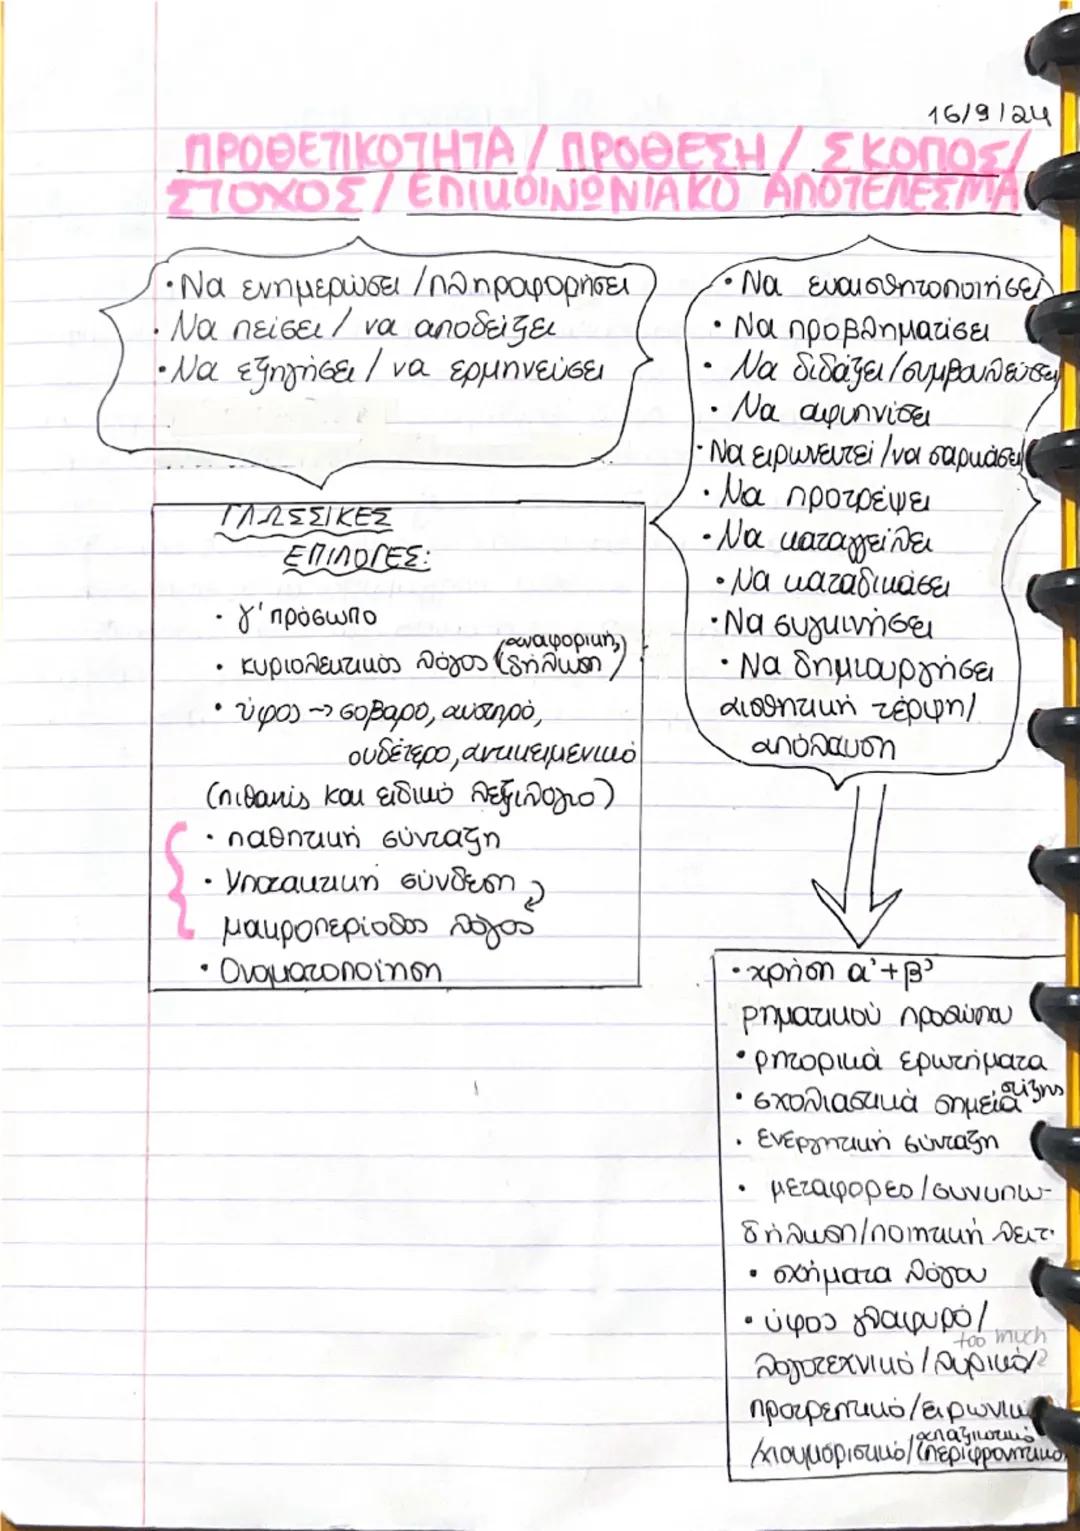 16/9/24
ΠΡΟΘΕΤΙΚΟΤΗΤΑ / ΠΡΟΘΕΣΗ / ΣΚΟΠΟΣ/
ΣΤΟΧΟΣ / ΕΠΙΚΟΙΝΩΝΙΑΚΟ ΑΠΟΤΕΛΕΣΜΑ
• Να ενημερώσει / πληροφορήσει
• Να πείσει / να αποδείξει
• Να εξηγήσει / να ερμηνεύσει
ΓΛΩΣΣΙΚΕΣ
ΕΠΙΛΟΓΕΣ:
• γ' πρόσωπο
• κυριολεκτικός λόγος (αναφορική,
δήλωση)
• ύφος → σοβαρό, αυστηρό,
ουδέτερο, αντικειμενικό
(πιθανώς και ειδικό λεξιλόγιο)
• παθητική σύνταξη
• Υποτακτική σύνδεση
μακροπερίοδος λόγος
• Ονοματοποίηση
• Να ευαισθητοποιήσει
• Να προβληματίσει
• Να διδάξει / συμβουλεύσει
• Να αφυπνίσει
• Να ειρωνευτεί / να σαρκάσει
• Να προτρέψει
• Να καταγγείλει
• Να καταδικάσει
• Να συγκινήσει
• Να δημιουργήσει
αισθητική τέρψη/
απόλαυση
• χρήση α' + β'
ρηματικού προσώπου
• ρητορικά ερωτήματα
• σχολιαστικά σημεία στίξης
• ενεργητική σύνταξη
• μεταφορες / συνυπο-
δήλωση / ποιητική λειτ.
• σχήματα λόγου
• ύφος γλαφυρό /
too much
λογοτεχνικό / λυρικό /?
προτρεπτικό / ειρωνικ
/ χιουμοριστικό / απαξιωτικό
(περιφρονητικό